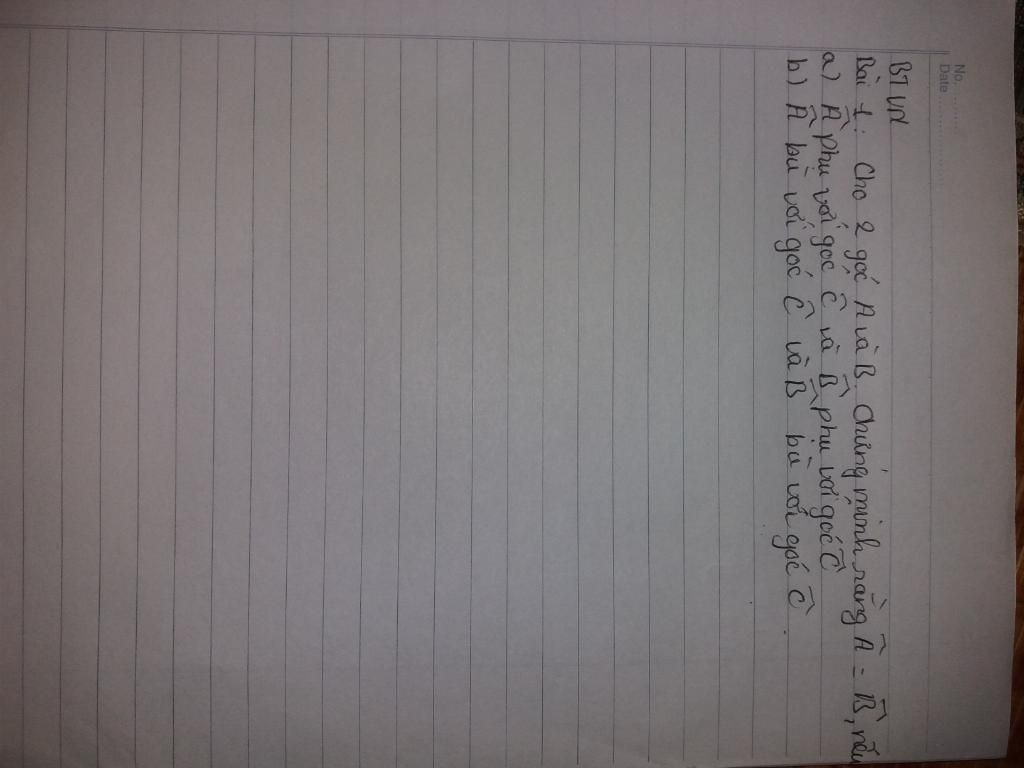 No. ............
Date ....................
BTVN
Bài 1: Cho 2 góc A và B. Chứng minh rằng Â = B̂, nếu
a) Â phụ với góc Ĉ và B̂ phụ với góc Ĉ
b) Â bù với góc Ĉ và B̂ bù với góc Ĉ.